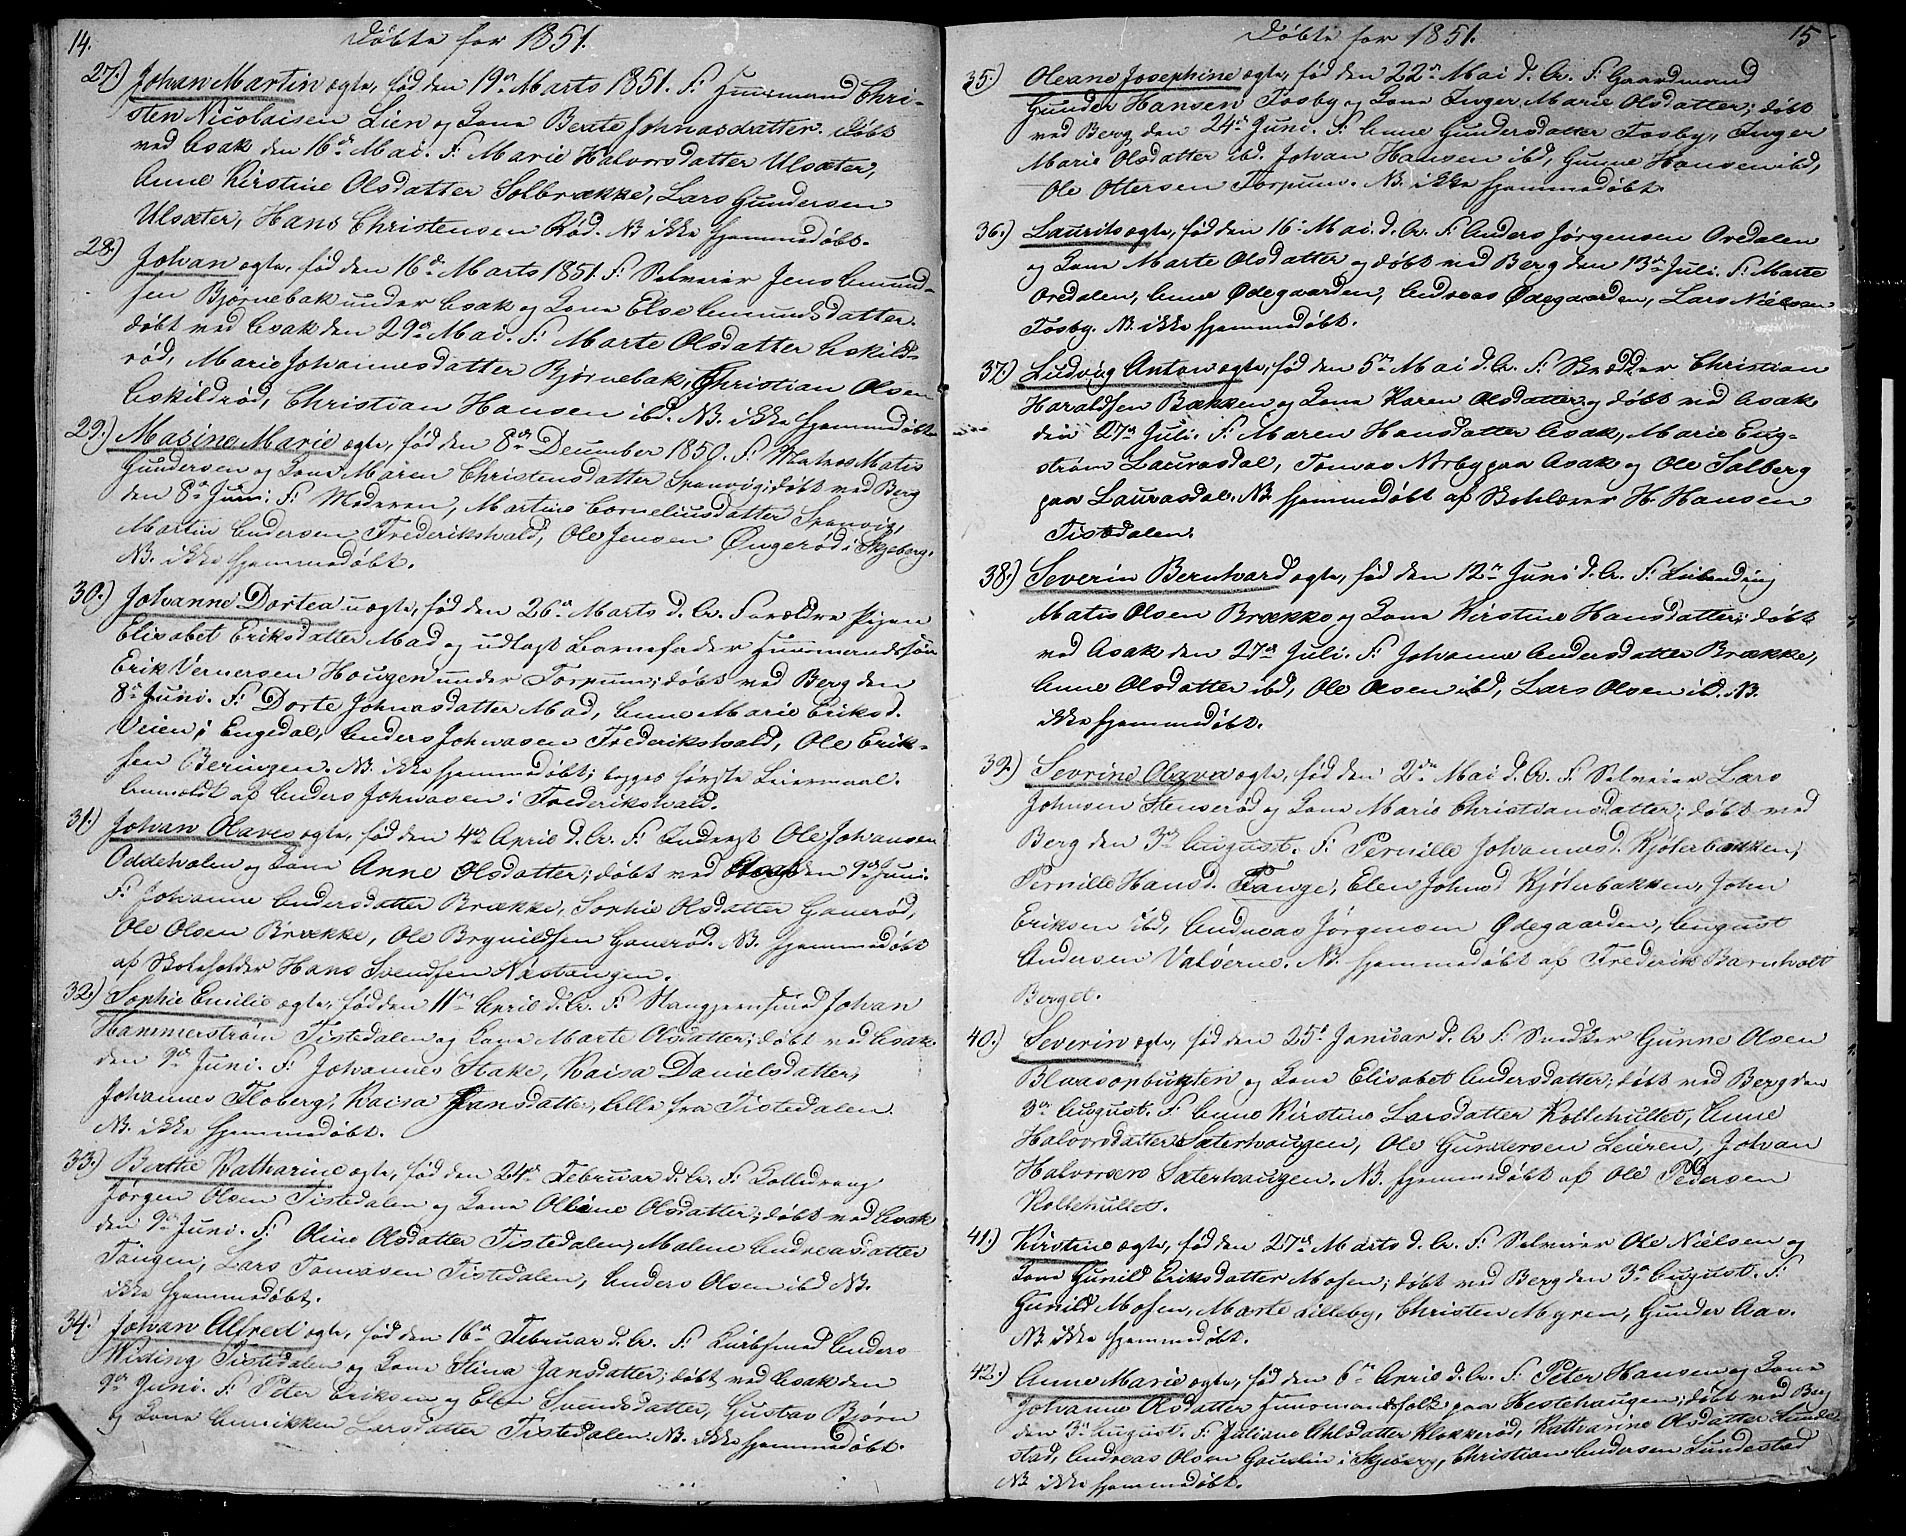 14.
Døbte for 1851.
27.) Johan Martin ægte, fød den 19de Marts 1851. F: Huusmand Chri-
sten Nicolaisen Lien og Kone Berte Johnasdatter. døbt
ved Asak den 16de Mai. F: Marie Halvorsdatter Ulsæter,
Anne Kirstine Olsdatter Solbrække, Lars Gundersen
Ulsæter, Hans Christensen Rød. NB ikke hjemmedøbt.
28.) Johan ægte, fød den 16de Marts 1851. F: Selveier Jens Amund-
sen Bjørnebak under Asak og Kone Else Amundsdatter.
døbt ved Asak den 29de Mai. F: Marte Olsdatter Askilds-
rød, Marie Johannesdatter Bjørnebak, Christian Olsen
Askildrød, Christian Hansen ibd. NB. ikke hjemmedøbt
29.) Masine Marie ægte, fød den 8de December 1850. F: Matros Matis
Gundersen og Kone Maren Christensdatter Sponvig; døbt ved Berg
den 8de Juni. F: Moderen, Martine Corneliusdatter Sponvig,
Martin Andersen Frederikshald, Ole Jensen Øngerød i Skjeberg.
NB. ikke hjemmedøbt.
30.) Johanne Dortea uægte, fød den 26de Marts d. A. Forældre Pigen
Elisabet Eriksdatter Mad og udlagt Barnefader Huusmandssøn
Erik Vernersen Hougen under Torpum; døbt ved Berg den
8de Juni. F: Dorte Johnasdatter Mad, Anne Marie Eriksd.
Veien i Engedal, Anders Johnasen Frederikshald, Ole Erik-
sen Beringen. NB. ikke hjemmedøbt; begges første Leiermaal.
Anmeldt af Anders Johnasen i Frederikshald.
31.) Johan Olaves ægte, fød den 4de April d. A. F: Inderst Ole Johansen
Oddehalen og Kone Anne Olsdatter; døbt ved Asak den 9de Juni.
F: Johanne Andersdatter Brække, Sophie Olsdatter Ganerød,
Ole Olsen Brække, Ole Brynildsen Ganerød. NB. hjemmedøbt
af Skoleholder Hans Svendsen Nistangen.
32.) Sophie Emilie ægte, fød den 11te April d. A. F: Stangjernsmed Johan
Hammerstrøm Tistedalen og Kone Marte Olsdatter; døbt ved Asak
den 9de Juni. F: Johannes Stake, Kaisa Danielsdatter,
Johannes Floberg, Kaisa Jansdatter, Alle fra Tistedalen.
NB. ikke hjemmedøbt.
33.) Berthe Katharine ægte, fød den 24de Februar d. A. F:
Jørgen Olsen Tistedalen og Kone Olline Olsdatter; døbt ved Asak
den 9de Juni. F: Oline Olsdatter Tistedalen, Malene Andreasdatter
Tangen, Lars Tomasen Tistedalen, Anders Olsen ibd NB.
ikke hjemmedøbt.
34.) Johan Alfred ægte, fød den 16de Februar d. A. F: Anders
Widing Tistedalen og Kone Stina Jansdatter; døbt ved Asak den
9de Juni. F: Peter Eriksen og Elen Svendsdatter, Gustav Bjørn
og Kone Annikken Larsdatter Tistedalen. NB. ikke hjemmedøbt.
Døbte for 1851.
15
35.) Oleane Josephine ægte, fød den 22de Mai d. A. F: Gaardmand
Gunder Hansen Fosby og Kone Inger Marie Olsdatter; døbt
ved Berg den 24de Juni. F: Anne Gundersdatter Fosby, Inger
Marie Olsdatter ibd. Johan Hansen ibd, Gunne Hansen ibd,
Ole Ottersen Torpum. NB. ikke hjemmedøbt.
36.) Laurits ægte, fød den 16de Mai. d. A. F: Anders Jørgensen Oredalen
og Kone Marte Olsdatter og døbt ved Berg den 13de Juli. F: Marte
Oredalen, Anne Ødegaarden, Andreas Ødegaarden, Lars Nielsen
Fosby. NB. ikke hjemmedøbt.
37.) Ludvig Anton ægte, fød den 5te Mai d. A. F: Skrædder Christian
Haraldsen Bækken og Kone Karen Olsdatter og døbt ved Asak
den 27de Juli. F: Maren Hansdatter Asak, Marie Eng-
strøm Laurasdal, Tomas Norby paa Asak og Ole Solberg
paa Laurasdal. NB. hjemmedøbt af Skolelærer H. Hansen
Tistedalen.
38.) Severin Bernhard ægte, fød den 12te Juni d. A. F:
Matis Olsen Brække og Kone Kirstine Hansdatter; døbt
ved Asak den 27de Juli. F: Johanne Andersdatter Brække,
Anne Olsdatter ibd, Ole Olsen ibd, Lars Olsen ibd. NB.
ikke hjemmedøbt.
39.) Sevrine Olava ægte, fød den 2den Mai d. A. F. Selveier Lars
Johnsen Stenserød og Kone Maria Christiansdatter; døbt ved
Berg den 3de August. F: Pernille Johannesd. Kjøterbakken,
Pernille Hansd. Tange, Elen Johnsd Kjøterbakken, John
Eriksen ibd, Andreas Jørgensen Ødegaarden, August
Andersen Valverne. NB. hjemmedøbt af Frederik Barnholt
Berget.
40.) Severin ægte, fød den 25de Januar d. A F: Snedker Gunne Olsen
Blaasopbugten og Kone Elisabet Andersdatter; døbt ved Berg den
3de August. F: Anne Kirstine Larsdatter Kollehullet, Anne
Halvorsdatter Saterhaugen, Ole Gundersen Leiren, Johan
Halvorsen Saterhaugen. NB. hjemmedøbt af Ole Pedersen
Kollehullet.
41.) Kirstine ægte, fød den 27de Marts d. A. F: Selveier Ole Nielsen og
Kone Gunild Eriksdatter Mosen; døbt ved Berg den 3de August. F:
Gunild Mosen, Marte Lilleby, Christen Myren, Gunder Aas.
NB. ikke hjemmedøbt.
42.) Anne Marie ægte, fød den 6te April d. A. F: Peter Hansen og Kone
Johanne Olsdatter Huusmandsfolk paa Hestehaugen; døbt ved Berg
den 3de August. F: Juliane Ahlsdatter Klokkerød, Katharine Olsdatter Lunde-
stad, Andreas Olsen Gauslin i Skjeberg, Christian Andersen Lundestad
NB ikke hjemmedøbt.